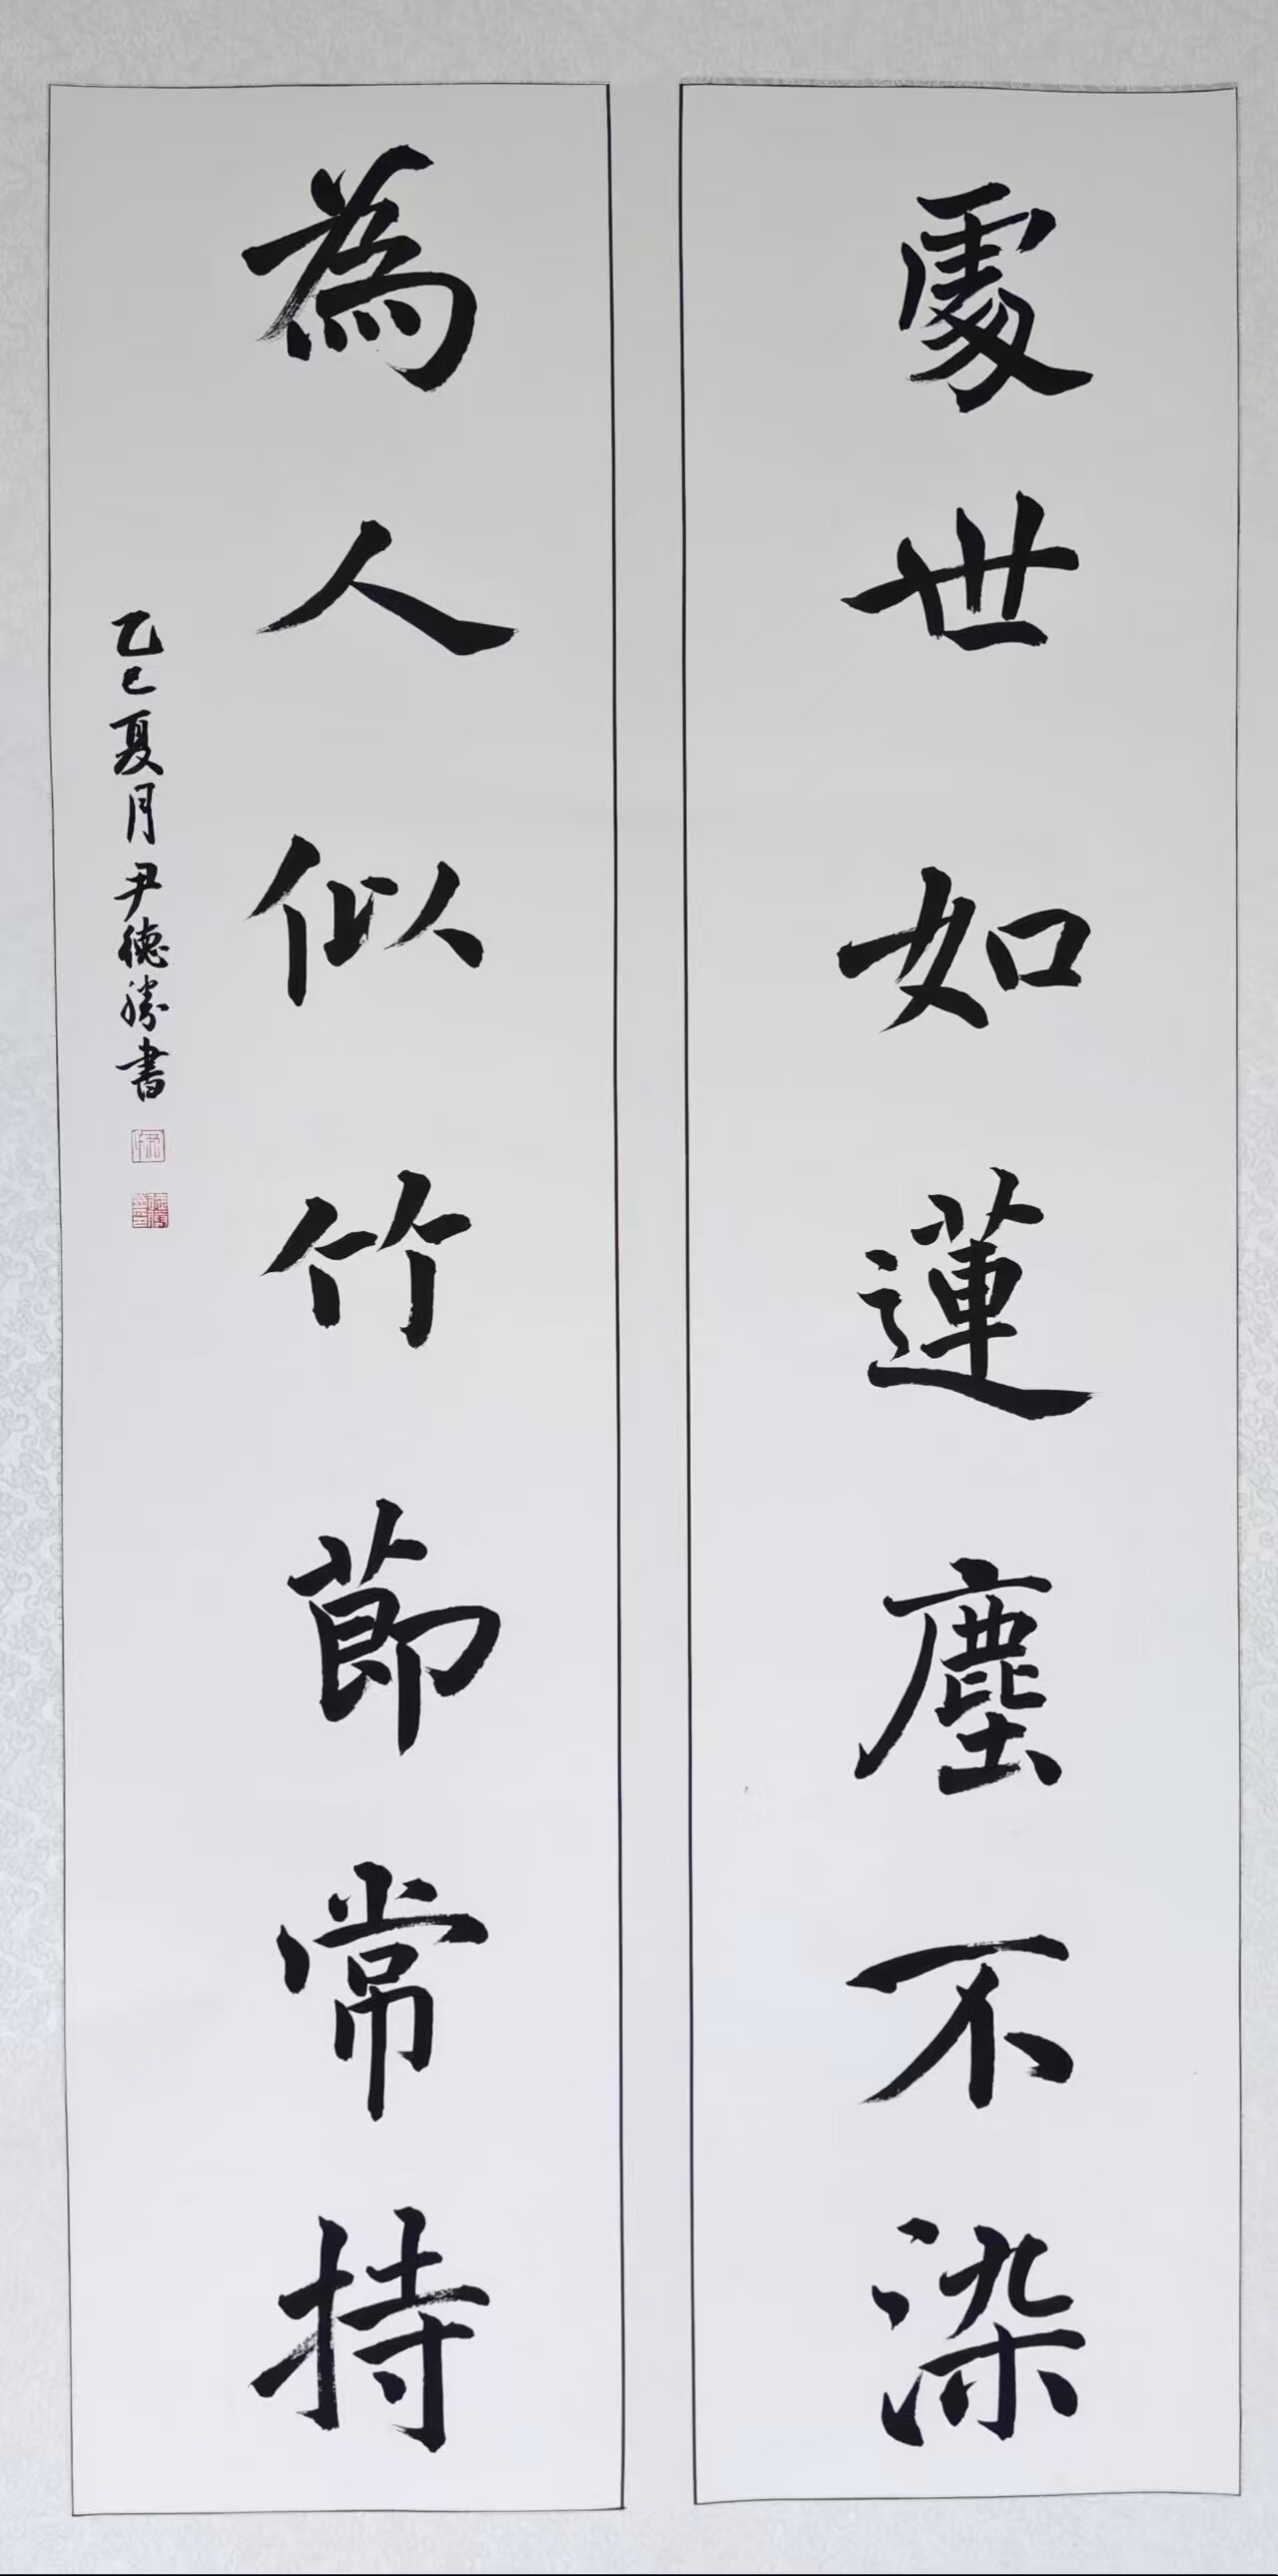 處世如蓮塵不染
為人似竹節常持
乙巳夏月尹德勝書